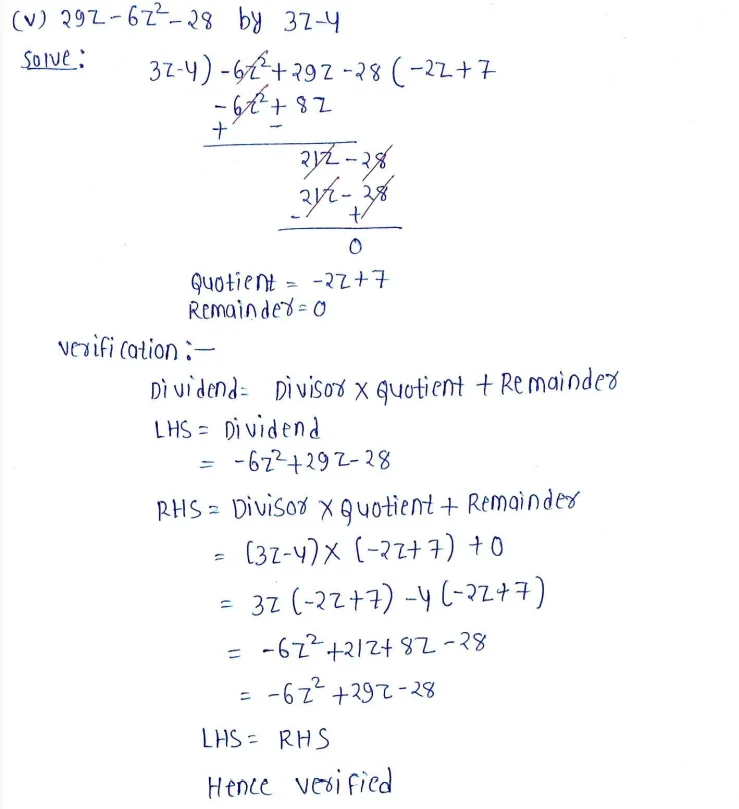 (v) 29z - 6z² - 28 by 3z-4
Solve :
3z-4 ) -6z² + 29z - 28 ( -2z + 7
-6z² + 8z
+ -
21z - 28
21z - 28
- +
0
Quotient = -2z + 7
Remainder = 0
verification :-
Dividend = Divisor × Quotient + Remainder
LHS = Dividend
= -6z² + 29z - 28
RHS = Divisor × Quotient + Remainder
= (3z-4) × (-2z + 7) + 0
= 3z (-2z+7) - 4 (-2z+7)
= -6z² + 21z + 8z - 28
= -6z² + 29z - 28
LHS = RHS
Hence verified